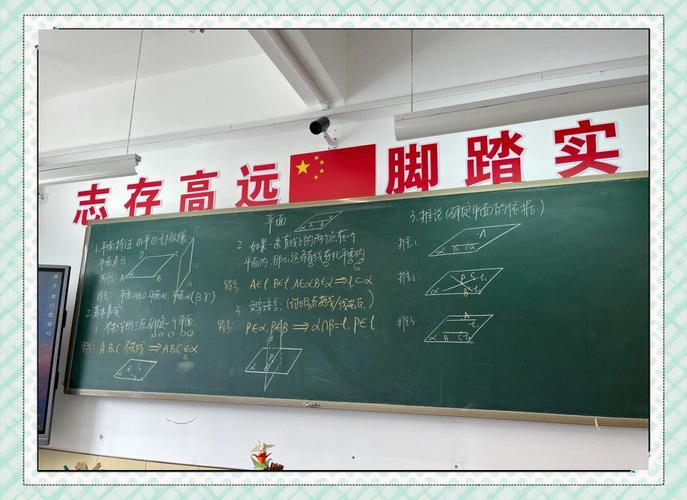 志存高远 脚踏实
平面
1.平面特征 ①平②无限延展
平面表示
D
A
B
图形:
符号: 平面ABCD 平面AC 平面α(β,γ)
2.基本事实:
1 不共线的三点确定一个平面
符号: A.B.C 不共线 ⇒ A.B.C∈α
2. 如果一条直线上的两个点在一个
平面内,那么这条直线在此平面内
符号: A∈l, B∈l, A∈α, B∈α ⇒ l⊂α
3. 文字语言:
符号: P∈α, P∈β ⇒ α∩β=l, P∈l
3.推论(确定平面的依据)
推论1
A
推论2
推论3